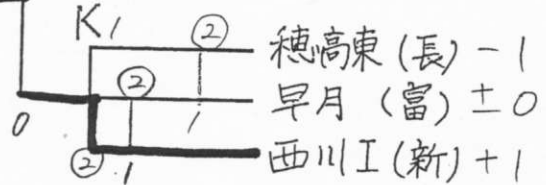 K1 ② 穂高東(長)-1
② 早月 (富)±0
0 1
② 1 西川I(新)+1